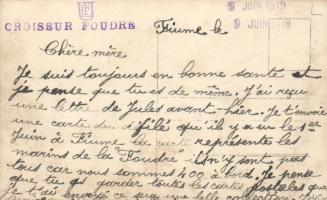 CF
9 JUIN 1919
CROISEUR FOUDRE
9 JUIN 1919
Fiume le
Chère mère
Je suis toujours en bonne sante et
je pense que tu es de même. J'ai reçu
une lettre de Jules avant-hier. Je t'envoie
une carte du défilé qu'il y a eu le 1er
Juin à Fiume la carte représente les
marins de la "Foudre" il n'y sont pas
tous car nous sommes 400 à bord. Je pense
que tu garder toutes les cartes postales que
je t'ai envoyé ce sera une belle collection